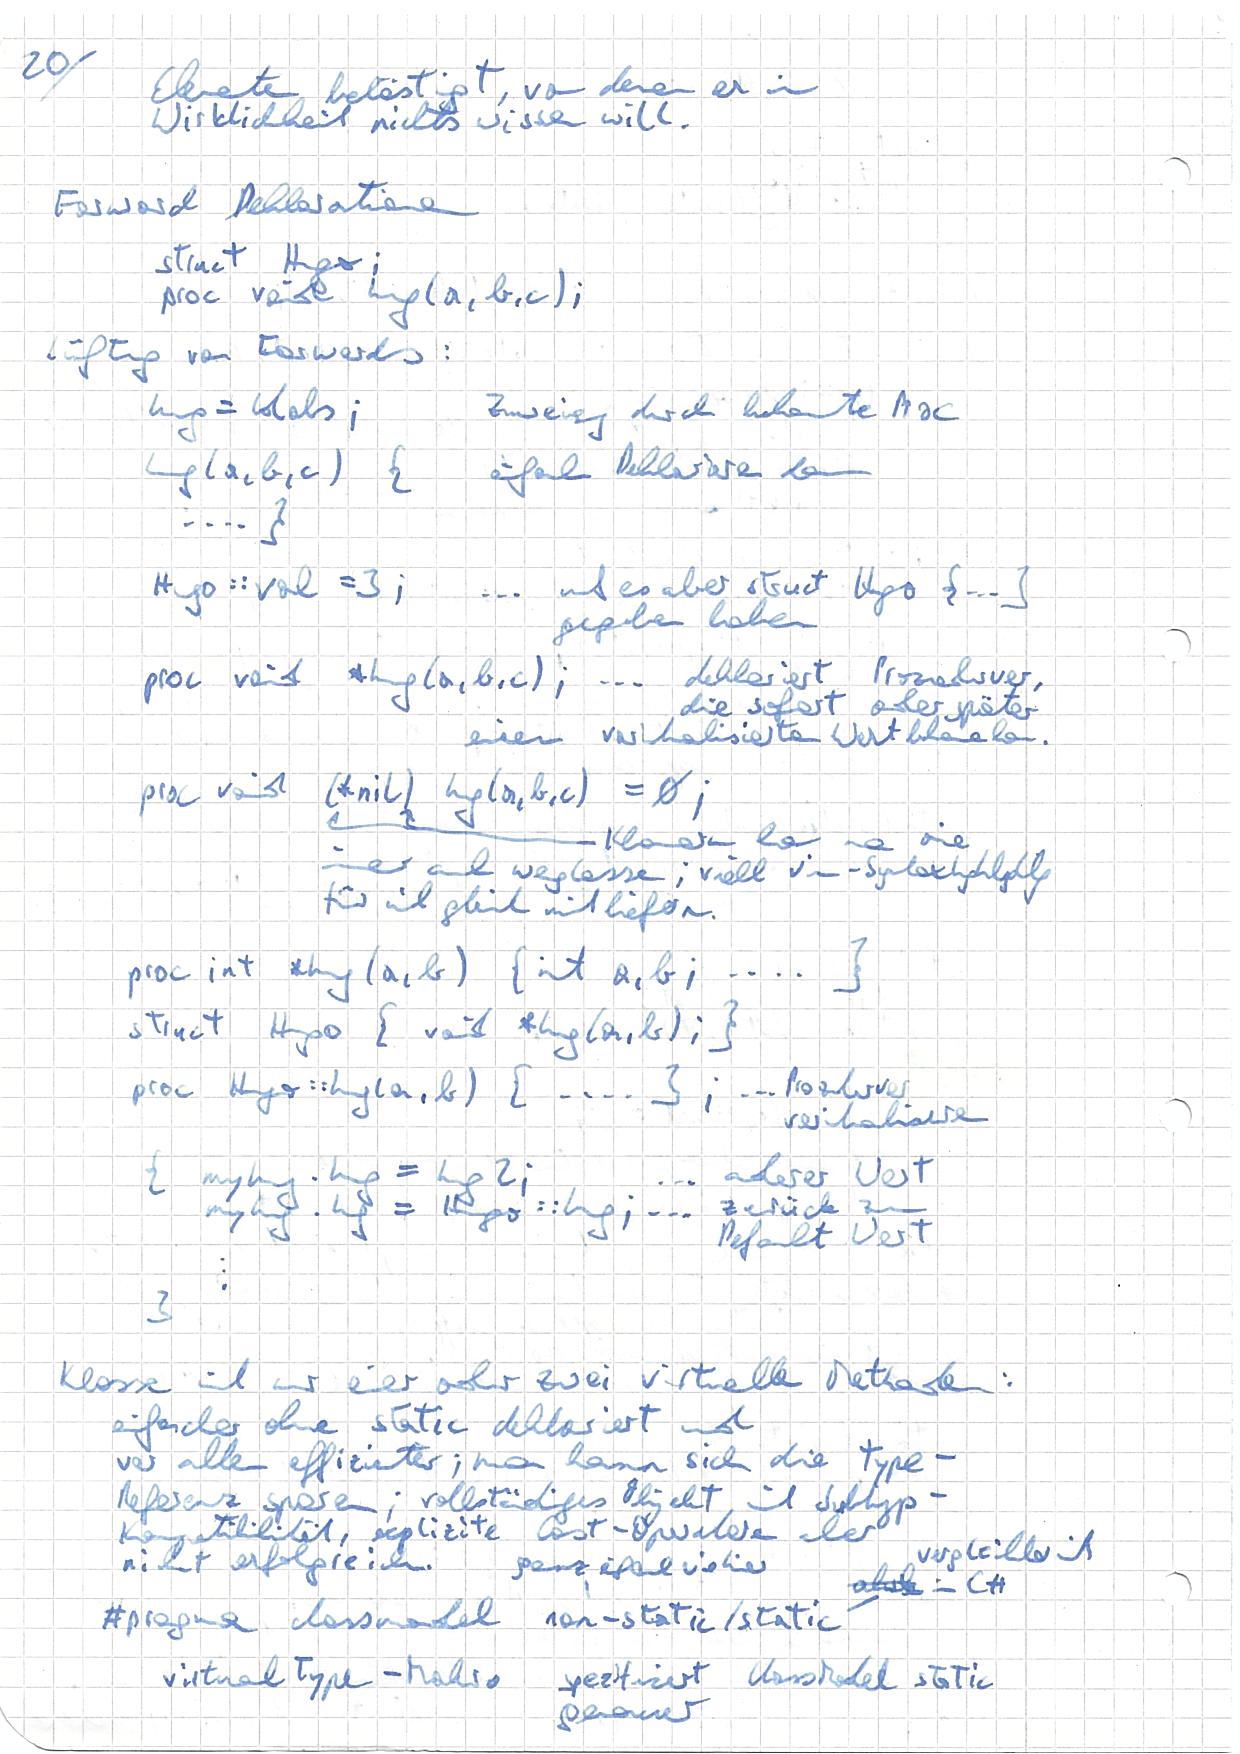 20/
Elemente belästigt, von denen er in
Wirklichkeit nichts wissen will.
Forward Deklarationen
struct Hugo;
proc void hug(a, b, c);
Lüftung von Forwards:
hug = blabs; Zuweisung durch bekannte Proc
hug(a, b, c) { einfach Deklarieren
..... }
Hugo::val = 3; ... muß es aber struct Hugo {...}
gegeben haben
proc void *hug(a, b, c); ... deklariert Prozedurvar,
die sofort oder später
einen virtualisierten Wert bekommen kann.
proc void (*nil) hug(a, b, c) = 0;
Klammern kann man wie
immer auch weglassen; viell. vim-Syntaxhighlighting
für nil gleich mitliefern.
proc int *hug(a, b) {int a, b; ..... }
struct Hugo { void *hug(a, b); }
proc Hugo::hug(a, b) { ..... } ; ... Prozedurvar
virtualisieren
{ myhug.hug = hug2; ... anderer Wert
myhug.hug = Hugo::hug; ... zurück zum
Default Wert
⋮
}
Klasse mit nur einer oder zwei virtuellen Methoden:
einfacher ohne static deklariert und
vor allem effizienter; man kann sich die Type-
Referenz sparen; vollständiges Objekt mit Subtyp-
Kompatibilität, explizite Cast-Operatoren aber
nicht erfolgreich. ganz egal wieviel
vergleichbar mit
in C#
#pragma classmodel non-static/static
virtual Type-Makro spezifiziert classmodel static
genauer